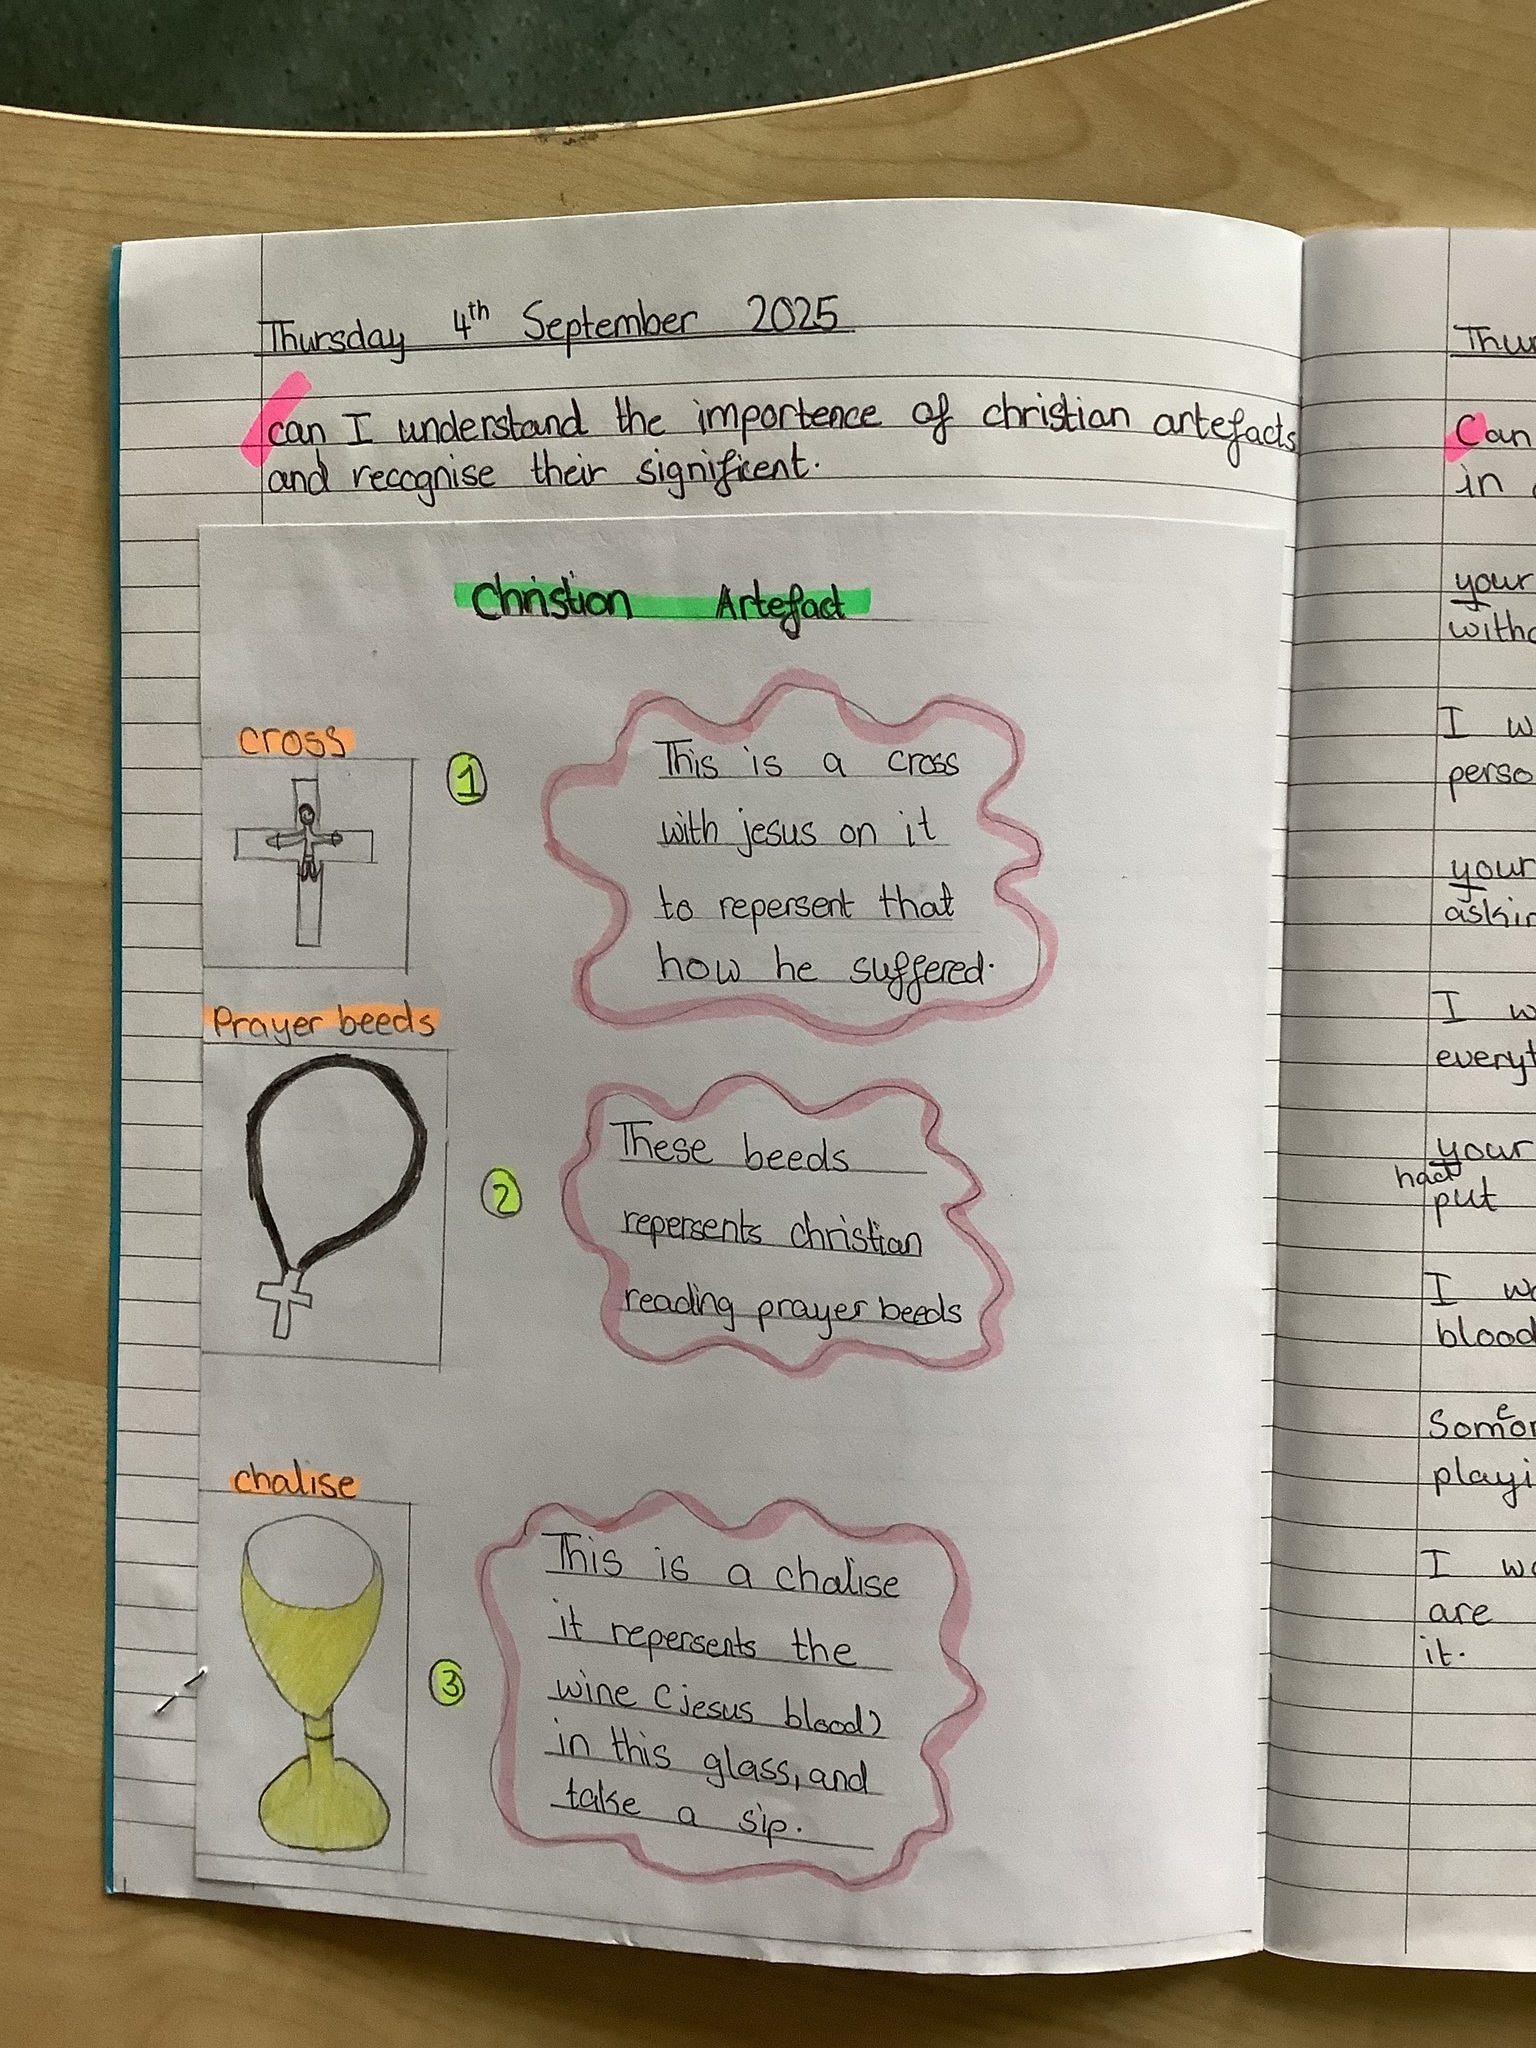 Thursday 4th September 2025
can I understand the importence of christian artefacts
and recognise their significent.
Christion Artefact
cross
1
This is a cross
with jesus on it
to repersent that
how he suffered.
Prayer beeds
2
These beeds
repersents christian
reading prayer beeds
chalise
3
This is a chalise
it repersents the
wine (jesus blood)
in this glass, and
take a sip.
Can
in
your
I
your
I
your
had
put
I
blood
I
are
it.